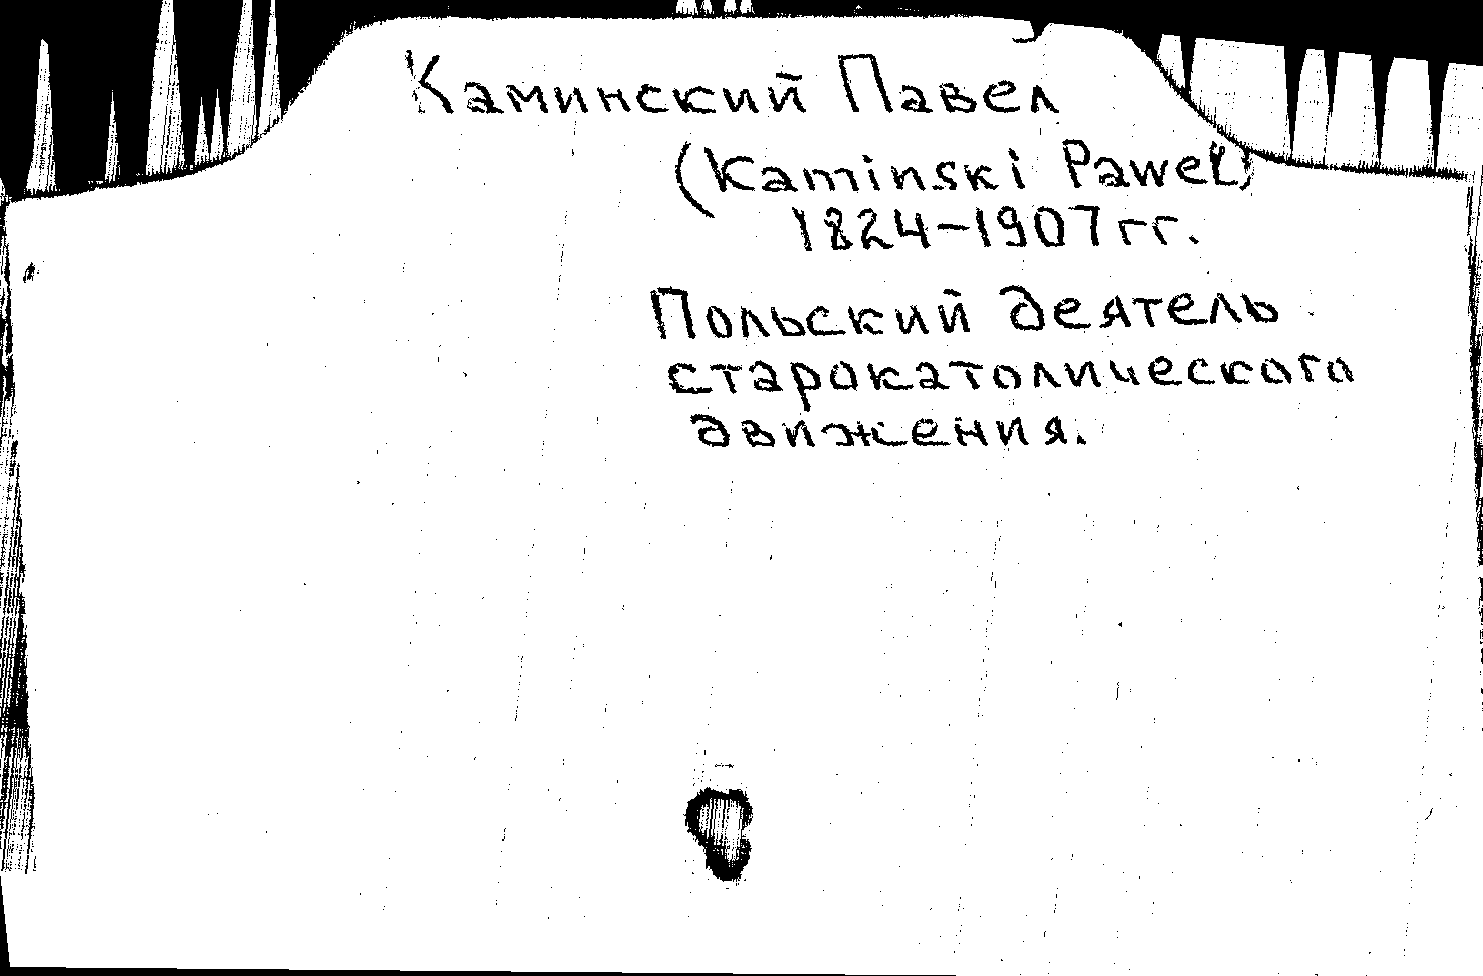 Каминский Павел
(Kaminski Paweł)
1824-1907 гг.
Польский деятель
старокатолического
движения.